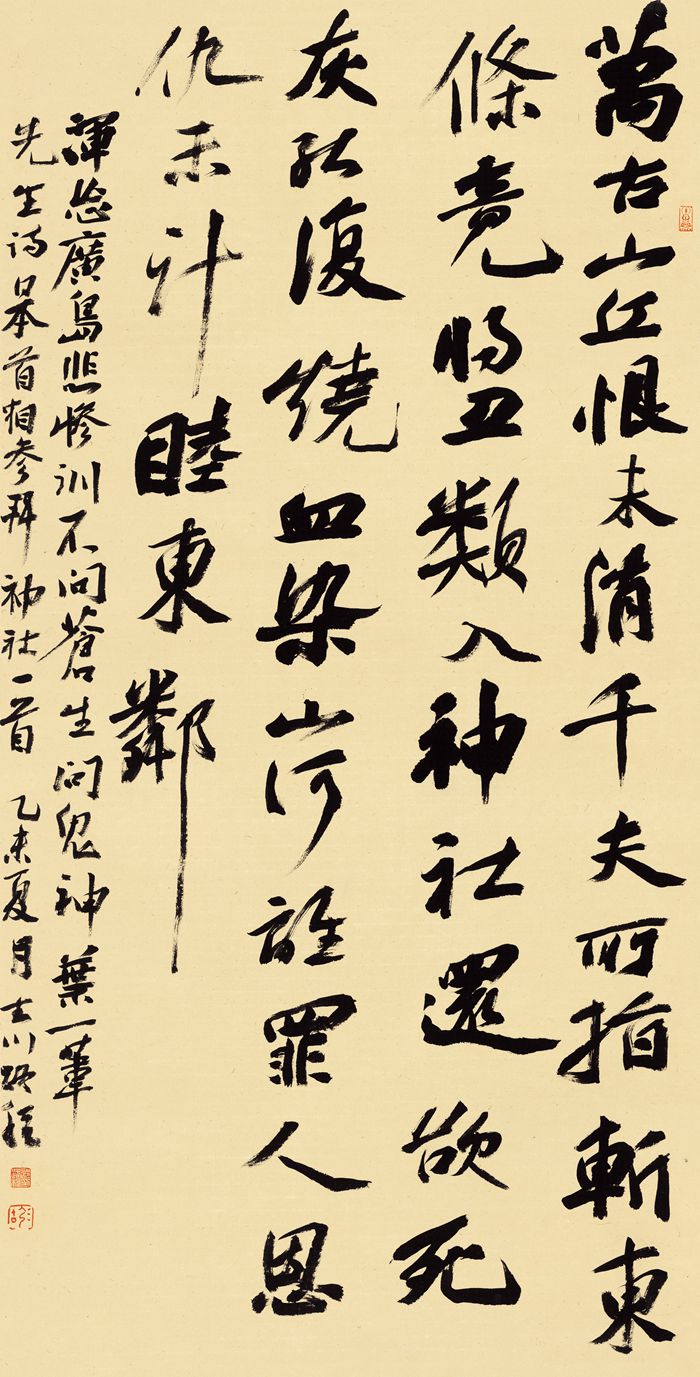 萬古山丘恨未消千夫所指斬東
條竟將丑類入神社還欲死
灰能復燒血染山河誰罪人恩
仇未計睦東鄰
渾忘廣島悲慘訓不問蒼生問鬼神 葉一葦
先生詩日本首相參拜神社一首 乙未夏月